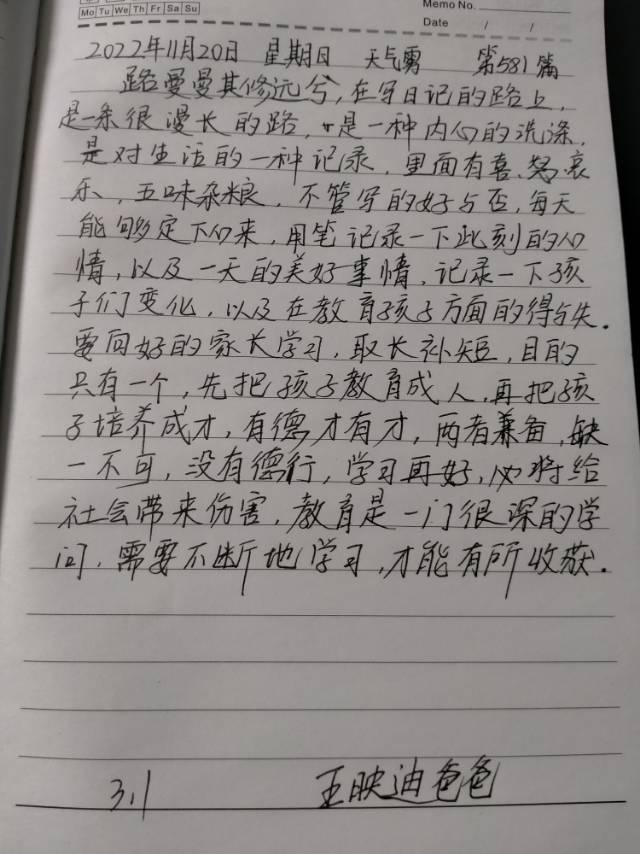 Memo No.
Mo Tu We Th Fr Sa Su
Date / /
2022年11月20日 星期日 天气雾 第581篇
路曼曼其修远兮,在写日记的路上,
是一条很漫长的路,也是一种内心的洗涤,
是对生活的一种记录,里面有喜、怒、哀
乐,五味杂粮,不管写的好与否,每天
能够定下心来,用笔记录一下此刻的心
情,以及一天的美好事情,记录一下孩
子们变化,以及在教育孩子方面的得与失.
要向好的家长学习,取长补短,目的
只有一个,先把孩子教育成人,再把孩
子培养成才,有德才有才,两者兼备,缺
一不可,没有德行,学习再好,必将给
社会带来伤害,教育是一门很深的学
问,需要不断地学习,才能有所收获.
3.1 王映迪爸爸